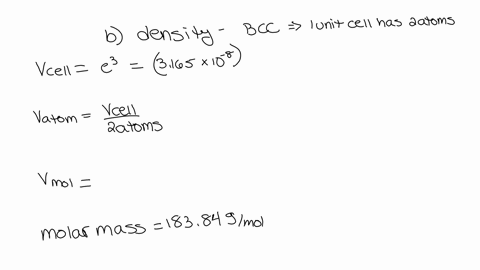 b) density - BCC ⇒ 1 unit cell has 2 atoms
Vcell = e³ = (3.165 × 10⁻⁸)
Vatom = Vcell / 2atoms
Vmol =
molar mass = 183.84 g/mol